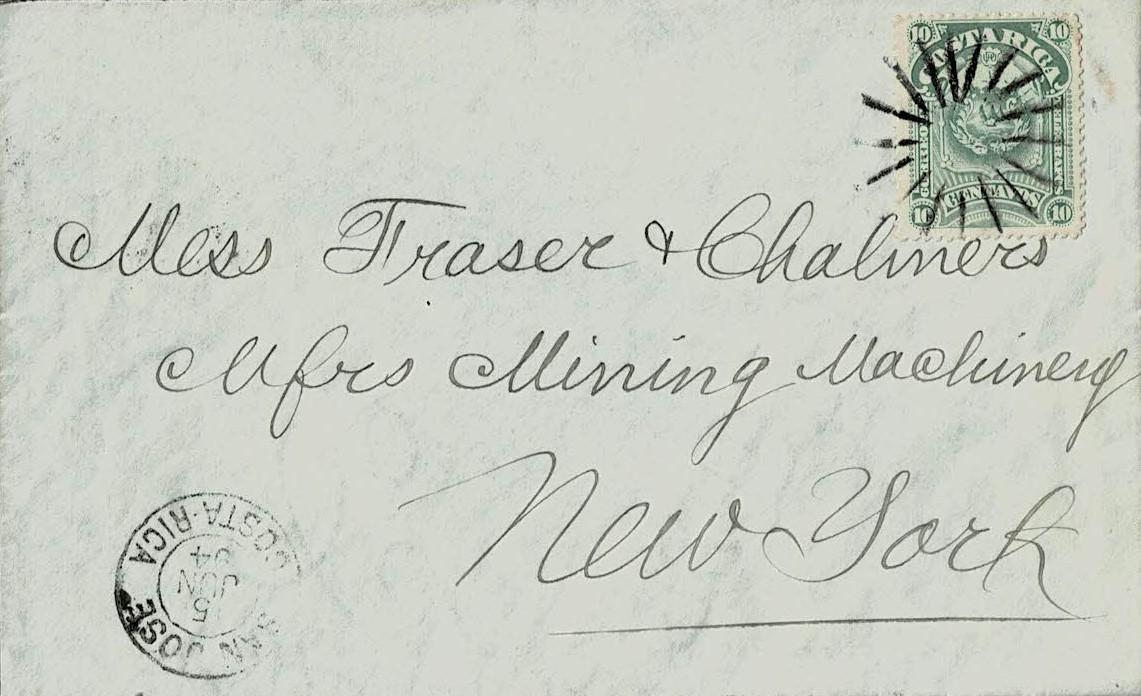 10 COSTA RICA 10
CORREOS
CENTAVOS
10 10
Mess Fraser & Chalmers
Mfrs Mining Machinery
New York
SAN JOSE
5
JUN
94
COSTA-RICA